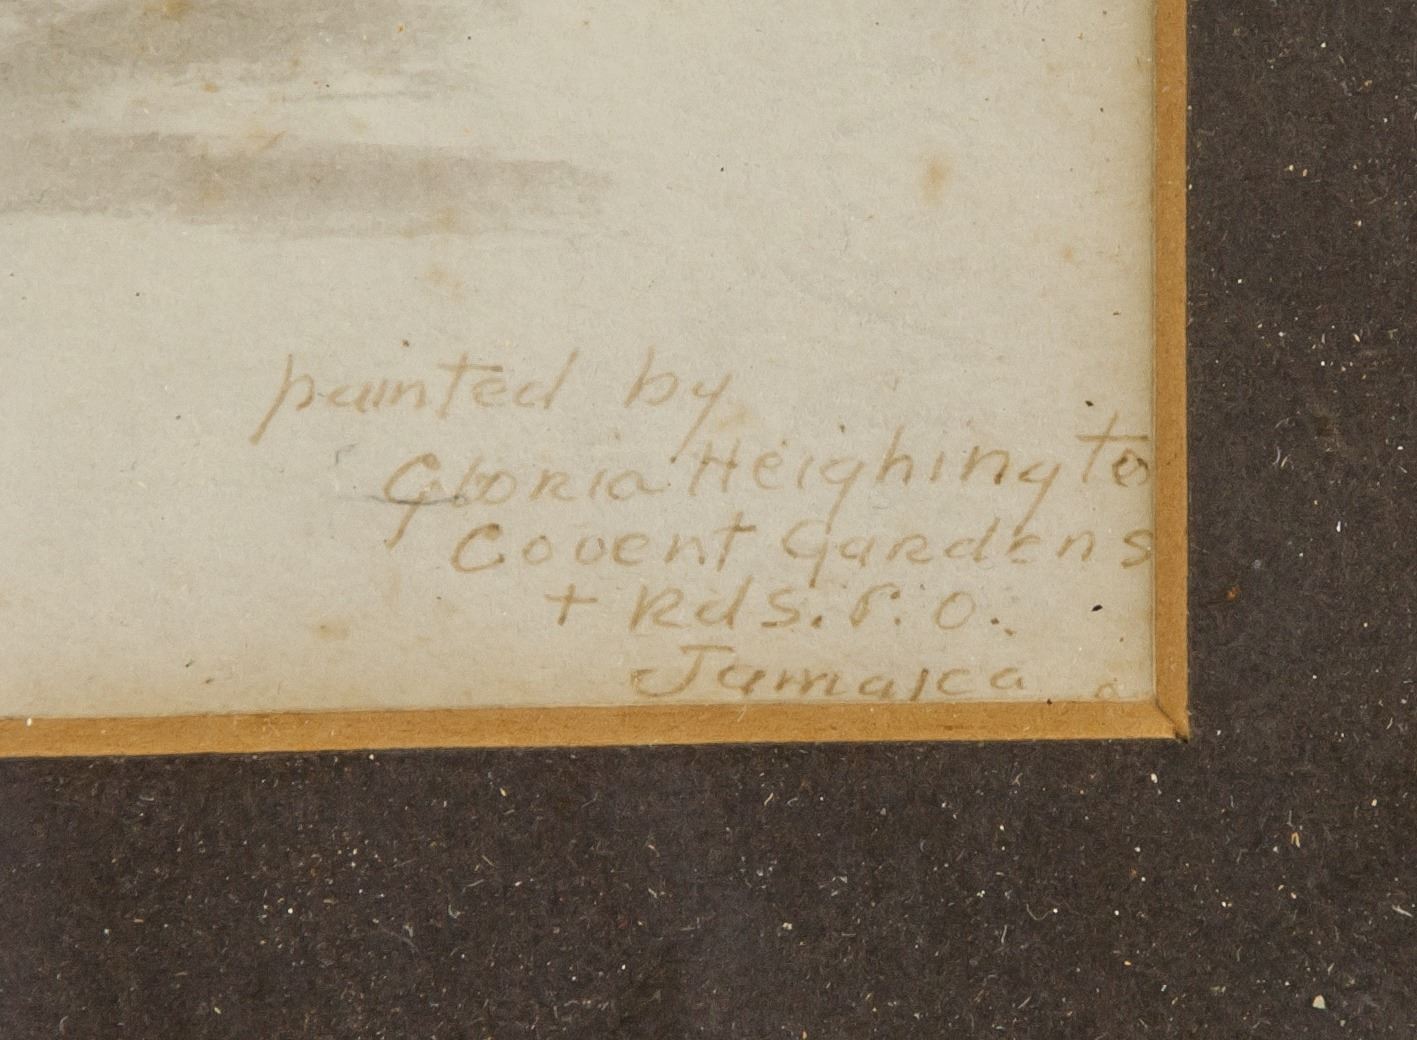 painted by
Gloria Heighingto
Covent Gardens
+ Rds. P. O.
Jamaica